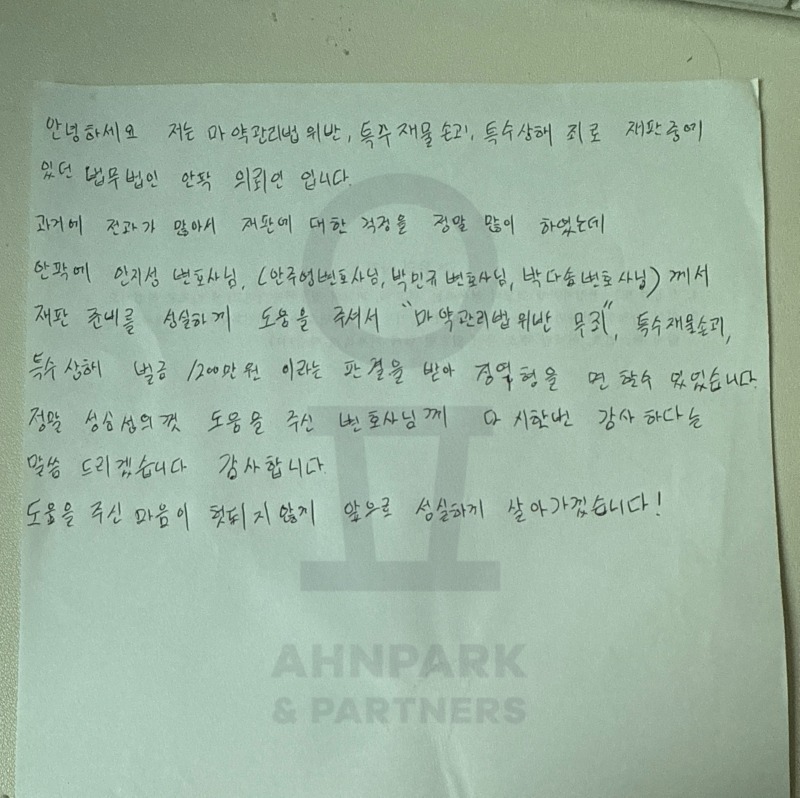 안녕하세요 저는 마약관리법위반, 특수재물손괴, 특수상해 죄로 재판중에
있던 법무법인 안팍 의뢰인 입니다.
과거에 전과가 많아서 재판에 대한 걱정을 정말 많이 하였는데
안팍에 안지성 변호사님, (안주영변호사님, 박민규변호사님, 박다솜변호사님) 께서
재판 준비를 성실하게 도움을 주셔서 "마약관리법위반 무죄", 특수재물손괴,
특수상해 벌금 1200만원 이라는 판결을 받아 징역형을 면 할수 있었습니다.
정말 성심성의껏 도움을 주신 변호사님께 다시한번 감사하다는
말씀 드리겠습니다 감사합니다.
도움을 주신 마음이 헛되지 않게 앞으로 성실하게 살아가겠습니다!
AHNPARK
& PARTNERS